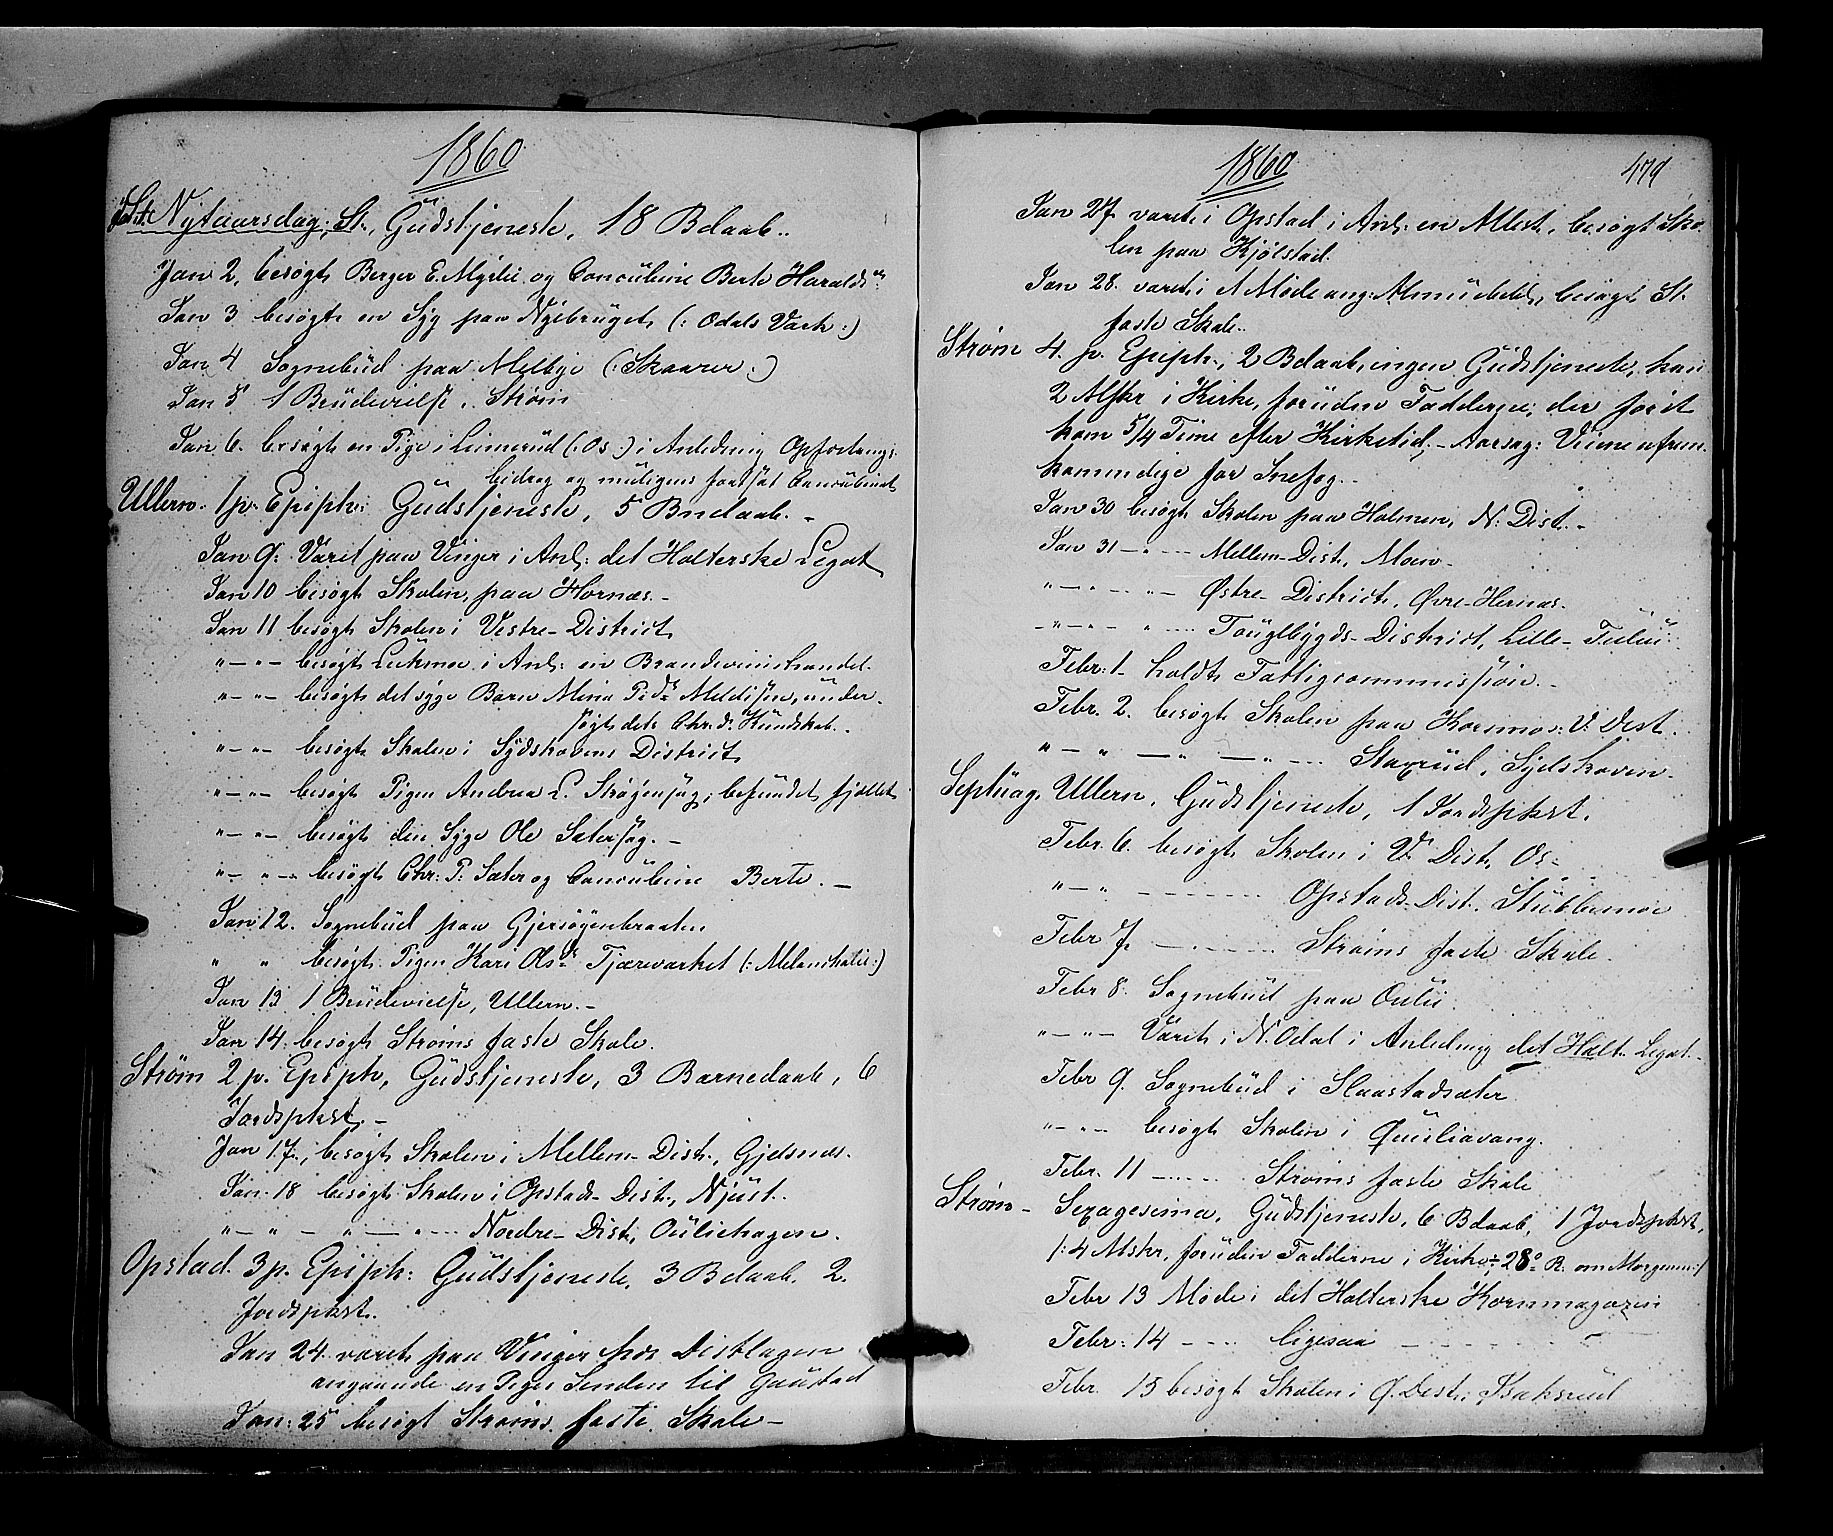 1860
Nytaarsdag, St., Gudstjeneste, 18 Bdaab.
Jan 2, besøgt Berger E. Myrlie og Concubine Berte Haraldsdr
Jan 3 besøgt en Syg paa Nyebruget (: Odals Værk :)
Jan 4 Sognebud paa Melbye (: Skaarer :)
Jan 5 1 Brudevielse, Strøm
Jan 6. besøgt en Pige i Linnerud (: Os :) i Anledning Opfostrings-
bidrag og muligens fortsat Concubinat
Ullern. 1 p. Epiph: Gudstjeneste, 5 Bndaab. -
Jan 9: Varet paa Vinger i Anl: det Holterske Legat
Jan 10 besøgt Skolen, paa Hornæs. -
Jan 11 besøgt Skolen i Vestre-District
" - " - besøgt Lukmoe i Anl: en Brændeviinshandel.
" - " - besøgt det syge Barn Mina Pedr. Meldissen, under-
søgt dets Chr.d. Kundskab. -
" - " - besøgt Skolen i Sydskovens District
" - " - besøgt Pigen Andrea L. Skøyensæg, befundet fjollet
" - " - besøgt den Syge Ole Sætersæg. -
" - " - besøgt Chr: P: Sæter og Concubine Berte. -
Jan 12. Sognebud paa Gjersøyenbraaten
" " besøgt Pigen Kari Olsd. Tjæreværket (: Melancholie :)
Jan 13 1 Brudevielse, Ullern. -
Jan 14. besøgt Strøms faste Skole.
Strøm 2 p. Epiph, Gudstjeneste, 3 Barnedaab, 6
Jordspkst. -
Jan 17, besøgt Skolen i Mellem-Dist., Gjelsnæs.
Jan 18 besøgt Skolen i Opstads-Dist., Njust.
" - " - " - " - Nordre-Dist, Ouliehagen.
Opstad. 3 p. Epiph: Gudstjeneste, 3 Bdaab. 2.
Jordspkst.
Jan 24. varet paa Vinger hos Distlægen
angaaende en Piges Senden til Gaustad
Jan: 25 besøgt Strøms faste Skole -
1860
479
Jan 27 varet i Opstad i Anl: en Attest, besøgt Sko-
len paa Kjølstad.
Jan 28. varet i Møde ang: Almuebibl., besøgt St.
faste Skole.
Strøm 4. p. Epiph., 2 Bdaab, ingen Gudstjeneste, kun
2 Msker i Kirke, foruden Fadderne, der først
kom 5/4 Time efter Kirketid, - Aarsag: Veiene ufrem-
kommelige for Snefog. -
Jan 30 besøgt Skolen paa Holmen, N: Dist. -
Jan 31 - " - Mellem-Dist, Moen -
" - " - " - Østre-District, Øvre-Hernæs.
- " - " - " - Tougbygds-District, Lille-Tului.
Febr: 1. holdt Fattigcommission. -
Febr. 2. besøgt Skolen paa Kornmoe: V: Dist.
" - " - " - " - Staxrud i Sydskoven -
Septuag. Ullern, Gudstjeneste, 1 Jordspkst.
Febr. 6. besøgt Skolen i V. Dist, Os -
" - " - - - Opstads-Dist. Stubbemoe
Febr 7. - - - Strøms faste Skole.
Febr 8. Sognebud paa Oulie.
" - " - Varet i N. Odal i Anledning det Holt. Legat. -
Febr 9. Sognebud i Slaastadsæter
" - " - besøgt Skolen i Ouliavang.
Febr. 11 - - - Strøms faste Skole
Strøm - Sexagesima, Gudstjeneste, 6 Bdaab, 1 Jordspkst,
/: 4 Mskr, foruden Fadderne i Kirke ÷ 28° R. om Morgenen :/
Febr 13 Møde i det Holterske Kornmagazin
Febr: 14 - - - ligesaa - - -
Febr. 15 besøgt Skolen i Ø. Dist, Isaksrud